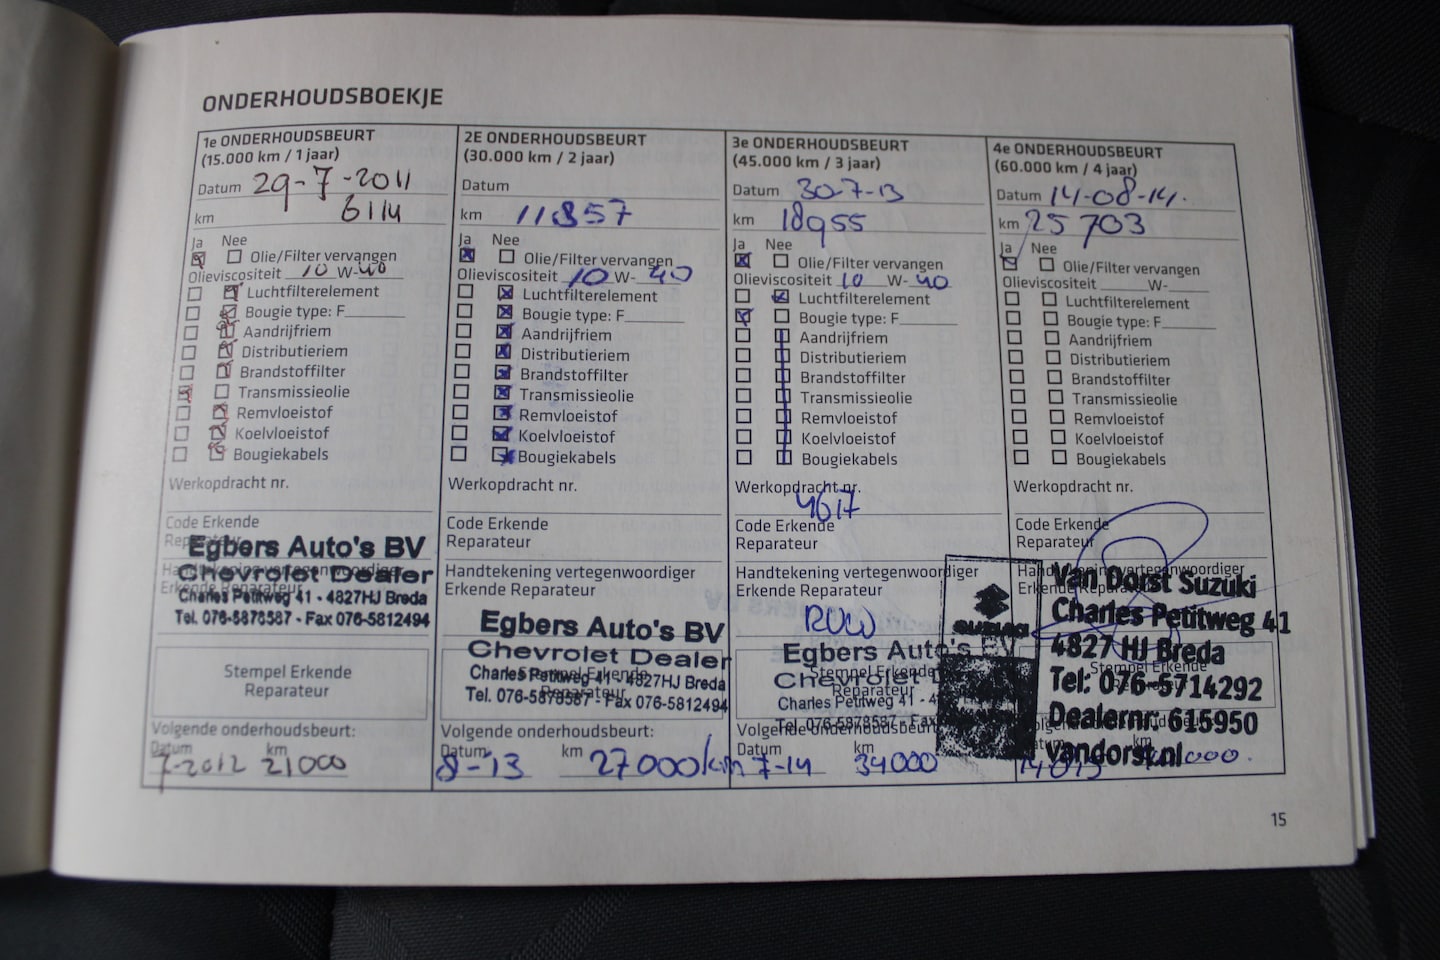 ONDERHOUDSBOEKJE
1e ONDERHOUDSBEURT
(15.000 km / 1 jaar)
Datum 29-7-2011
km 6114
Ja Nee
Olie/Filter vervangen
Olieviscositeit 10 W-40
Luchtfilterelement
Bougie type: F
Aandrijfriem
Distributieriem
Brandstoffilter
Transmissieolie
Remvloeistof
Koelvloeistof
Bougiekabels
Werkopdracht nr.
Code Erkende
Reparateur
Egbers Auto's BV
Handtekening vertegenwoordiger
Chevrolet Dealer
Erkende Reparateur
Charles Petitweg 41 - 4827HJ Breda
Tel. 076-5878587 - Fax 076-5812494
Stempel Erkende
Reparateur
Volgende onderhoudsbeurt:
Datum km
7-2012 21000
2E ONDERHOUDSBEURT
(30.000 km / 2 jaar)
Datum
km 11857
Ja Nee
Olie/Filter vervangen
Olieviscositeit 10 W-40
Luchtfilterelement
Bougie type: F
Aandrijfriem
Distributieriem
Brandstoffilter
Transmissieolie
Remvloeistof
Koelvloeistof
Bougiekabels
Werkopdracht nr.
Code Erkende
Reparateur
Handtekening vertegenwoordiger
Erkende Reparateur
Egbers Auto's BV
Chevrolet Dealer
Stempel Erkende
Charles Petitweg 41 - 4827HJ Breda
Reparateur
Tel. 076-5878587 - Fax 076-5812494
Volgende onderhoudsbeurt:
Datum km
8-13 27000 km
3e ONDERHOUDSBEURT
(45.000 km / 3 jaar)
Datum 30-7-13
km 18955
Ja Nee
Olie/Filter vervangen
Olieviscositeit 10 W-40
Luchtfilterelement
Bougie type: F
Aandrijfriem
Distributieriem
Brandstoffilter
Transmissieolie
Remvloeistof
Koelvloeistof
Bougiekabels
Werkopdracht nr.
4617
Code Erkende
Reparateur
Handtekening vertegenwoordiger
Erkende Reparateur
Egbers Auto's BV
Stempel Erkende
Chevrolet D
Reparateur
Charles Petitweg 41 - 4
Tel. 076-5878587 - Fax
Volgende onderhoudsbeurt
Datum km
7-14 34000
4e ONDERHOUDSBEURT
(60.000 km / 4 jaar)
Datum 14-08-14.
km 25703
Ja Nee
Olie/Filter vervangen
Olieviscositeit W-
Luchtfilterelement
Bougie type: F
Aandrijfriem
Distributieriem
Brandstoffilter
Transmissieolie
Remvloeistof
Koelvloeistof
Bougiekabels
Werkopdracht nr.
Code Erkende
Reparateur
SUZUKI
Van Dorst Suzuki
Charles Petitweg 41
4827 HJ Breda
Stempel Erkende
Tel: 076-5714292
Dealernr: 615950
vandorst.nl
15